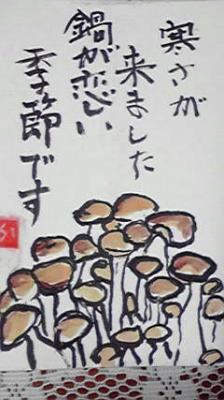 寒さが
来ました
鍋が恋しい
季節です